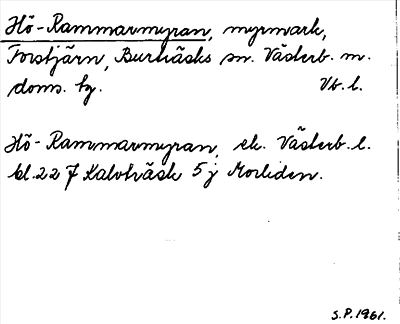 Hö-Rammarmyran, myrmark,
Forstjärn, Burträsks sn. Västerb. m.
doms. hg. Vb. l.
Hö-Rammarmyran, ek. Västerb. l.
bl. 22 J Kalvträsk 5 j Morliden.
S.P. 1961.